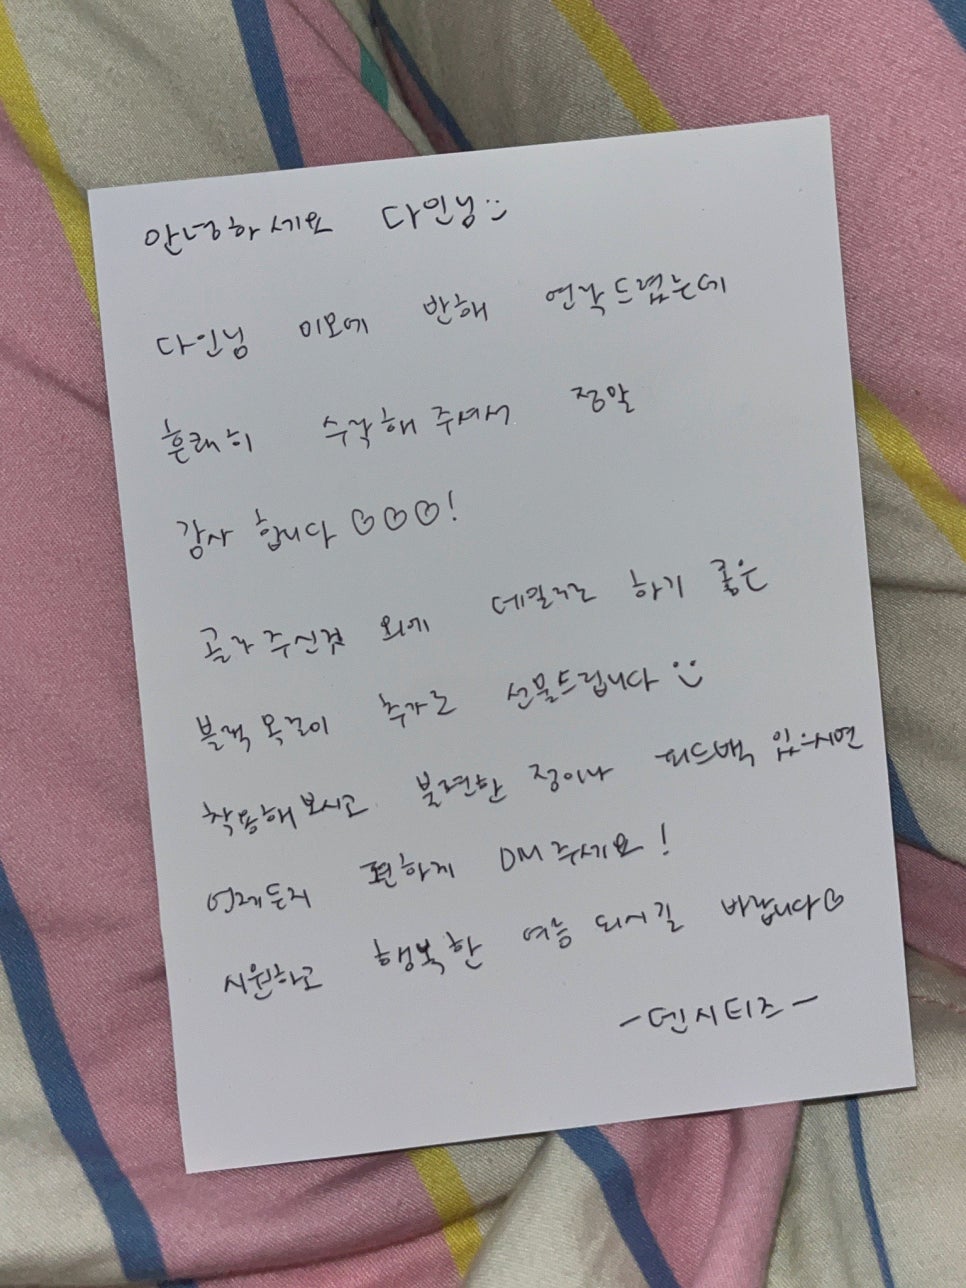 안녕하세요 다인님 :)
다인님 미모에 반해 연락드렸는데
흔쾌히 수락해 주셔서 정말
감사 합니다 ♡♡♡!
골라주신것 외에 데일리로 하기 좋은
블랙 목걸이 추가로 선물드립니다 :)
착용해보시고 불편한 점이나 피드백 있으시면
언제든지 편하게 DM 주세요!
시원하고 행복한 여름 되시길 바랍니다♡
-덴시티즈-